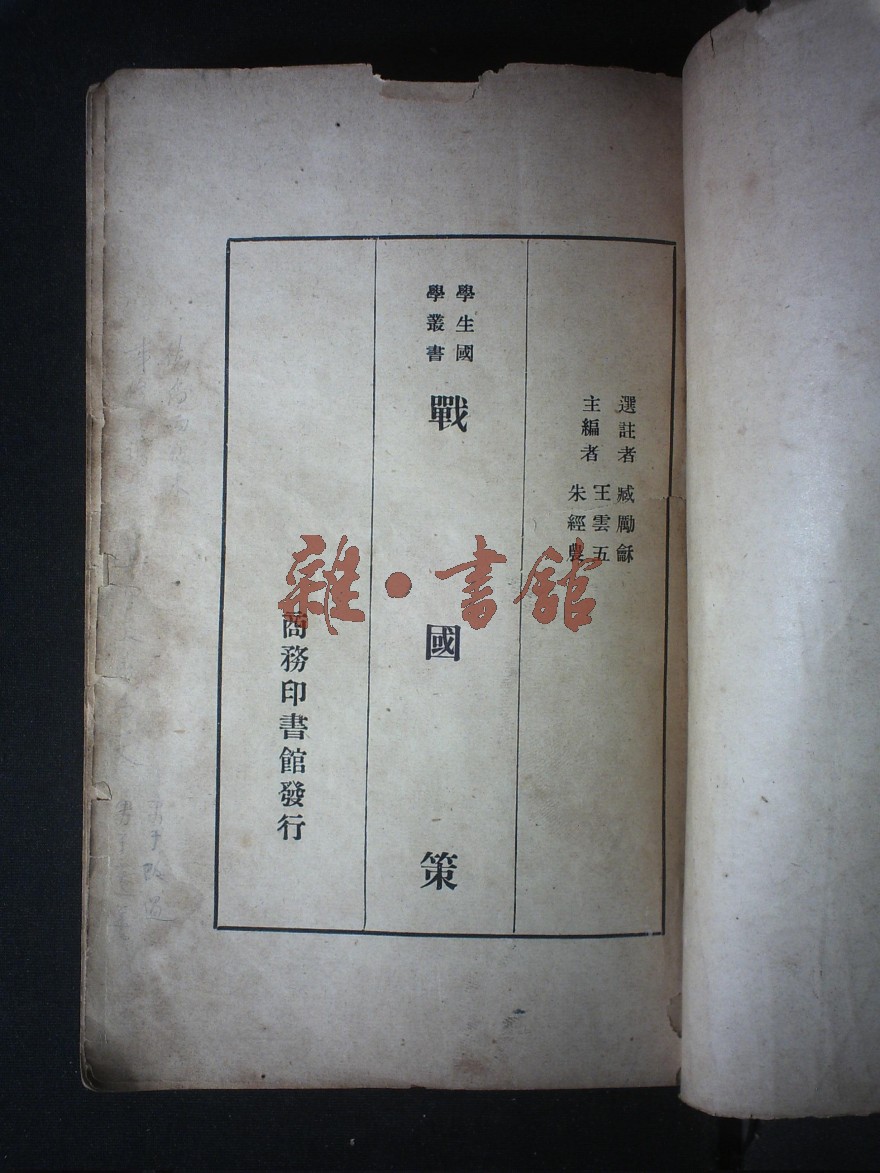 選註者 臧勵龢
主編者 王雲五
朱經農
學生國
學叢書
戰國策
商務印書館發行
雜·書館